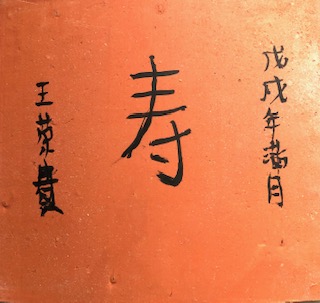 戊戌年满月
寿
王荣贵